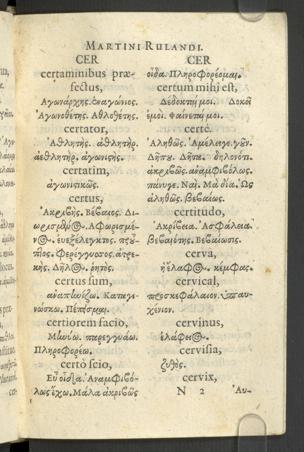 MARTINI RULANDI.
CER
certaminibus præ-
fectus,
Ἀγωνάρχης. ἐναγώνιος.
Ἀγωνοθέτης. Ἀθλοθέτης.
certator,
Ἀθλητής. ἀθλητήρ.
ἀεθλητήρ. ἀγωνιστής.
certatim,
ἀγωνιστικῶς.
certus,
Ἀκριβής. Βέβαιος. Δι-
ωρισμένος. Ἀφωρισμέ-
νος. ἀνεξέλεγκτος.
κής. Δῆλος. ῥητός.
certus sum,
Καταγι-
νώσκω. Πέπεισμαι.
certiorem facio,
Μηνύω. παρεγγυάω.
Πληροφορέω.
certò scio,
Εὖ οἶδα. Ἀναμφιβό-
λως ἔχω. Μάλα ἀκριβῶς
CER
οἶδα. Πληροφορέομαι.
certum mihi est,
Δέδοκταί μοι. Δοκεῖ
ἐμοί. Φαίνεταί μοι.
certè.
Ἀληθῶς. Ἀμέλει γε. γοῦν.
Δήπου. Δῆτα. δηλονότι.
ἀκριβῶς. ἀναμφιβόλως.
πάνυγε. Ναί. Μὰ δία. Ὡς
ἀληθῶς. βεβαίως.
certitudo,
Ἀκρίβεια. Ἀσφάλεια.
βεβαιότης. Βεβαίωσις.
cerva,
ἡ ἔλαφος. κεμφας.
cervical,
προσκεφάλαιον. ὑπαυ-
χένιον.
cervinus,
ἐλάφειος.
cervisia,
ζυθος.
cervix,
N 2 Αυ-